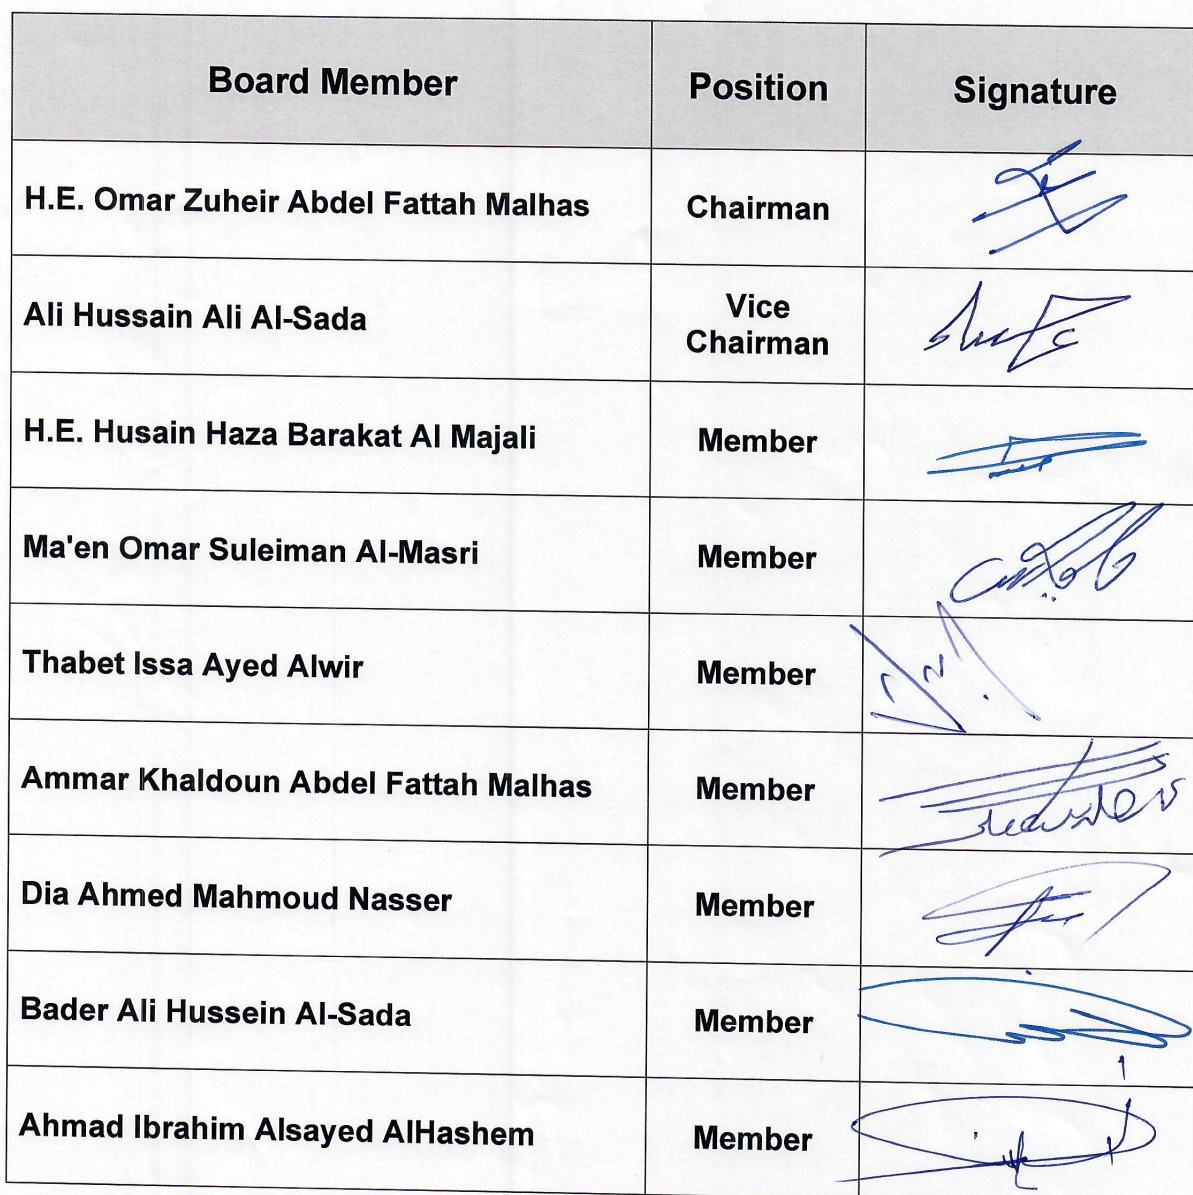 Board Member Position Signature
H.E. Omar Zuheir Abdel Fattah Malhas Chairman
Ali Hussain Ali Al-Sada Vice Chairman
H.E. Husain Haza Barakat Al Majali Member
Ma'en Omar Suleiman Al-Masri Member
Thabet Issa Ayed Alwir Member
Ammar Khaldoun Abdel Fattah Malhas Member
Dia Ahmed Mahmoud Nasser Member
Bader Ali Hussein Al-Sada Member
Ahmad Ibrahim Alsayed AlHashem Member